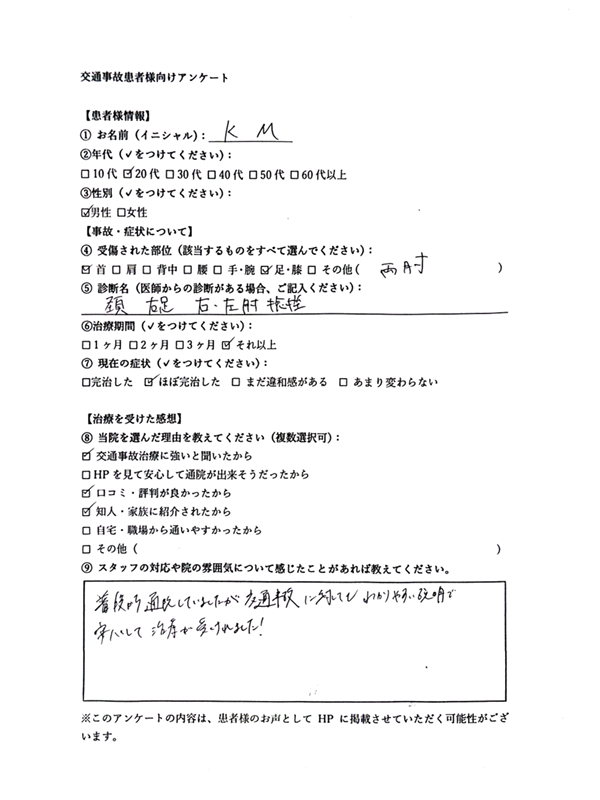 交通事故患者様向けアンケート
【患者様情報】
① お名前（イニシャル）： K M
②年代（✓をつけてください）：
□10代 ☑20代 □30代 □40代 □50代 □60代以上
③性別（✓をつけてください）：
☑男性 □女性
【事故・症状について】
④ 受傷された部位（該当するものをすべて選んでください）：
☑ 首 □ 肩 □ 背中 □ 腰 □ 手・腕 ☑ 足・膝 □ その他( 両肘 )
⑤ 診断名（医師からの診断がある場合、ご記入ください）：
頚 右足 右・左肘 捻挫
⑥治療期間（✓をつけてください）：
□1ヶ月 □2ヶ月 □3ヶ月 ☑それ以上
⑦ 現在の症状（✓をつけてください）：
□完治した ☑ほぼ完治した □ まだ違和感がある □ あまり変わらない
【治療を受けた感想】
⑧ 当院を選んだ理由を教えてください（複数選択可）：
☑ 交通事故治療に強いと聞いたから
□HPを見て安心して通院が出来そうだったから
☑ 口コミ・評判が良かったから
☑ 知人・家族に紹介されたから
□ 自宅・職場から通いやすかったから
□ その他（ ）
⑨ スタッフの対応や院の雰囲気について感じたことがあれば教えてください。
普段から通院していましたが 交通事故に対しても わかりやすい説明で
安心して 治療が受けれました！
※このアンケートの内容は、患者様のお声として HP に掲載させていただく可能性がござ
います。